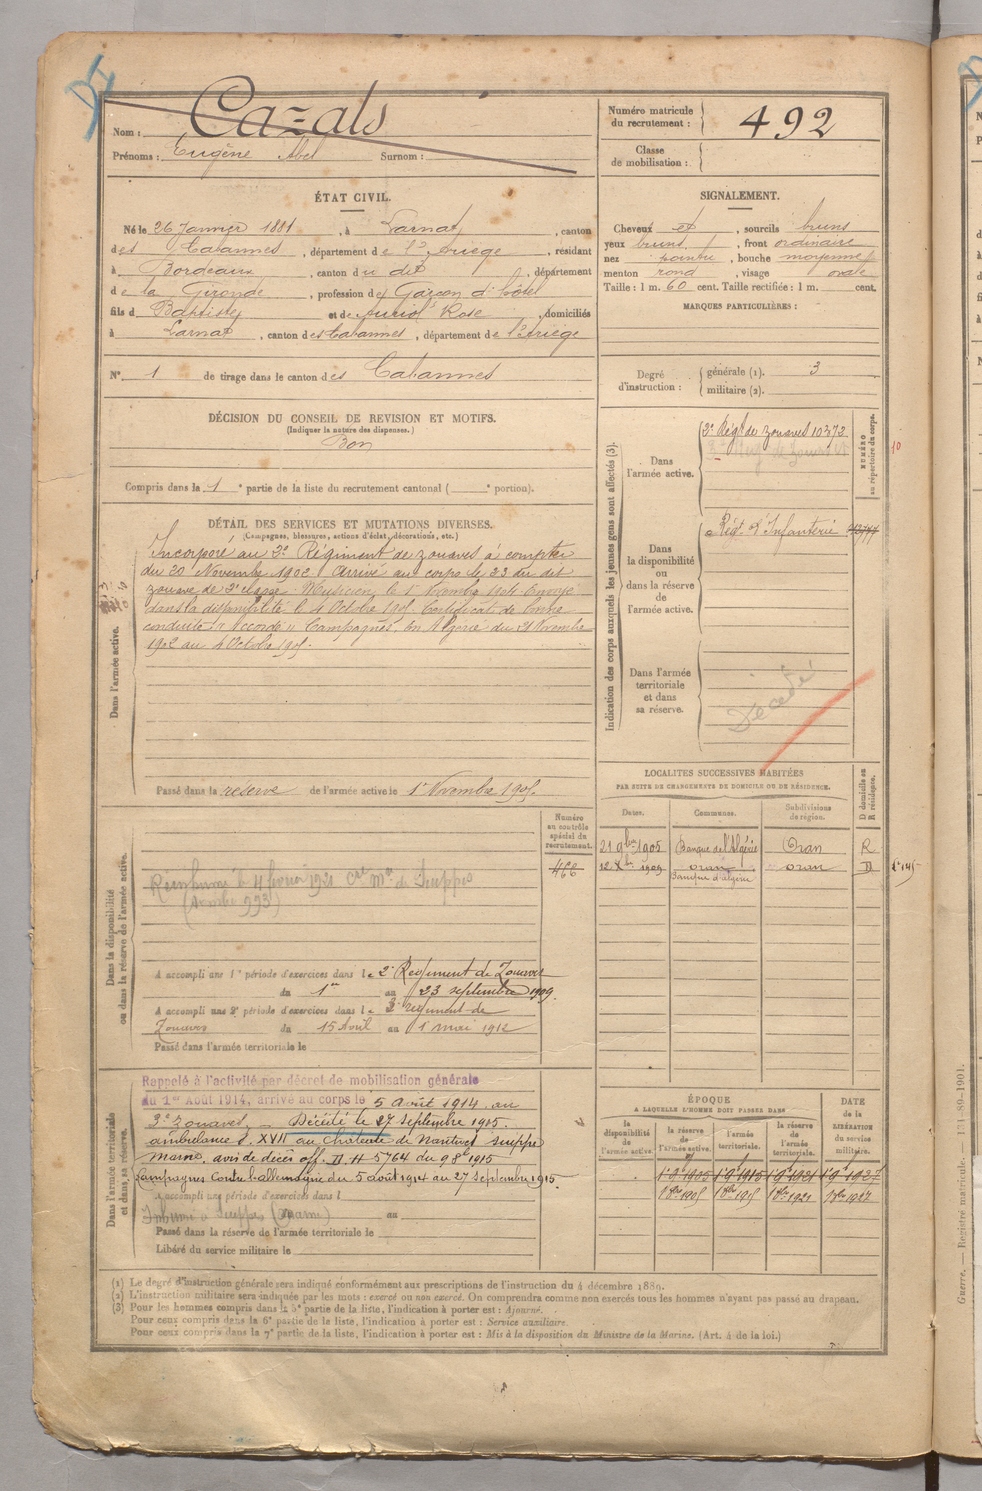 Nom : Cazals
Prénoms : Eugène Abel Surnom :
Numéro matricule du recrutement : 492
Classe de mobilisation :
ÉTAT CIVIL.
Né le 26 Janvier 1881, à Larnat, canton
des Cabannes, département de l'Ariège, résidant
à Bordeaux, canton du dit, département
de la Gironde, profession de Garçon d'hôtel
fils de Baptiste et de Auriol Rose domiciliés
à Larnat, canton des Cabannes, département de l'Ariège
N° 1 de tirage dans le canton des Cabannes
SIGNALEMENT.
Cheveux et, sourcils bruns
yeux bruns, front ordinaire
nez pointu, bouche moyenne
menton rond, visage ovale
Taille : 1 m. 60 cent. Taille rectifiée : 1 m. cent.
MARQUES PARTICULIÈRES :
Degré d'instruction : générale (1). 3
militaire (2).
DÉCISION DU CONSEIL DE REVISION ET MOTIFS.
(Indiquer la nature des dispenses.)
Bon
Compris dans la 1e partie de la liste du recrutement cantonal ( e portion).
DÉTAIL DES SERVICES ET MUTATIONS DIVERSES.
(Campagnes, blessures, actions d'éclat, décorations, etc.)
Dans l'armée active.
Incorporé au 2e Régiment de zouaves à compter
du 20 Novembre 1902 Arrivé au corps le 23 du dit
zouave de 2e classe Musicien le 1r Novembre 1904 Envoyé
dans la disponibilité le 4 Octobre 1905 Certificat de bonne
conduite "Accordé" Campagnes, En Algérie du 21 Novembre
1902 au 4 Octobre 1905.
Passé dans la réserve de l'armée active le 1r Novembre 1905.
Indication des corps auxquels les jeunes gens sont affectés (3).
NUMÉRO au répertoire du corps.
Dans l'armée active.
2e Régt de zouaves 10373
10
Dans la disponibilité ou dans la réserve de l'armée active.
Régt d'Infanterie
Dans l'armée territoriale et dans sa réserve.
Décédé
LOCALITÉS SUCCESSIVES HABITÉES
PAR SUITE DE CHANGEMENTS DE DOMICILE OU DE RÉSIDENCE.
Dates. Communes. Subdivisions de région. D domicile ou R résidence.
21 9bre 1905 Banque de l'Algérie Oran R
12 Xbre 1909 oran oran D
Banque d'algérie
Dans la disponibilité ou dans la réserve de l'armée active.
Numéro au contrôle spécial du recrutement.
466
Réinhumé le 4 février 1921 Cre Mre de Suippes
(tombe 993)
A accompli une 1e période d'exercices dans le 2e Régiment de Zouaves
du 1er au 23 septembre 1909.
A accompli une 2e période d'exercices dans le 2e régiment de
Zouaves du 15 Avril au 1 mai 1912
Passé dans l'armée territoriale le
Dans l'armée territoriale et dans sa réserve.
Rappelé à l'activité par décret de mobilisation générale
du 1er Août 1914, arrivé au corps le 5 août 1914 au
3e Zouaves. Décédé le 27 septembre 1915.
ambulance 8. XVII au Château de Nantivet Suippe
Marne. avis de décès off. II. H 5764 du 9 8e 1915
Campagnes Contre l'allemagne du 5 août 1914 au 27 septembre 1915.
a accompli une période d'exercices dans l
Inhumé à Suippes (Marne) au
Passé dans la réserve de l'armée territoriale le
Libéré du service militaire le
ÉPOQUE
A LAQUELLE L'HOMME DOIT PASSER DANS
la disponibilité de l'armée active. la réserve de l'armée active. l'armée territoriale. la réserve de l'armée territoriale. DATE de la LIBÉRATION du service militaire.
1r 9 1905 1r 9 1915 1r 9 1921 1r 9 1927
1 8bre 1905 1 8bre 1915 1 8bre 1921 1 8bre 1927
(1) Le degré d'instruction générale sera indiqué conformément aux prescriptions de l'instruction du 4 décembre 1889.
(2) L'instruction militaire sera indiquée par les mots : exercé ou non exercé. On comprendra comme non exercés tous les hommes n'ayant pas passé au drapeau.
(3) Pour les hommes compris dans la 5e partie de la liste, l'indication à porter est : Ajourné.
Pour ceux compris dans la 6e partie de la liste, l'indication à porter est : Service auxiliaire.
Pour ceux compris dans la 7e partie de la liste, l'indication à porter est : Mis à la disposition du Ministre de la Marine. (Art. 4 de la loi.)
Guerre. — Registre matricule. — 131-89-1901.